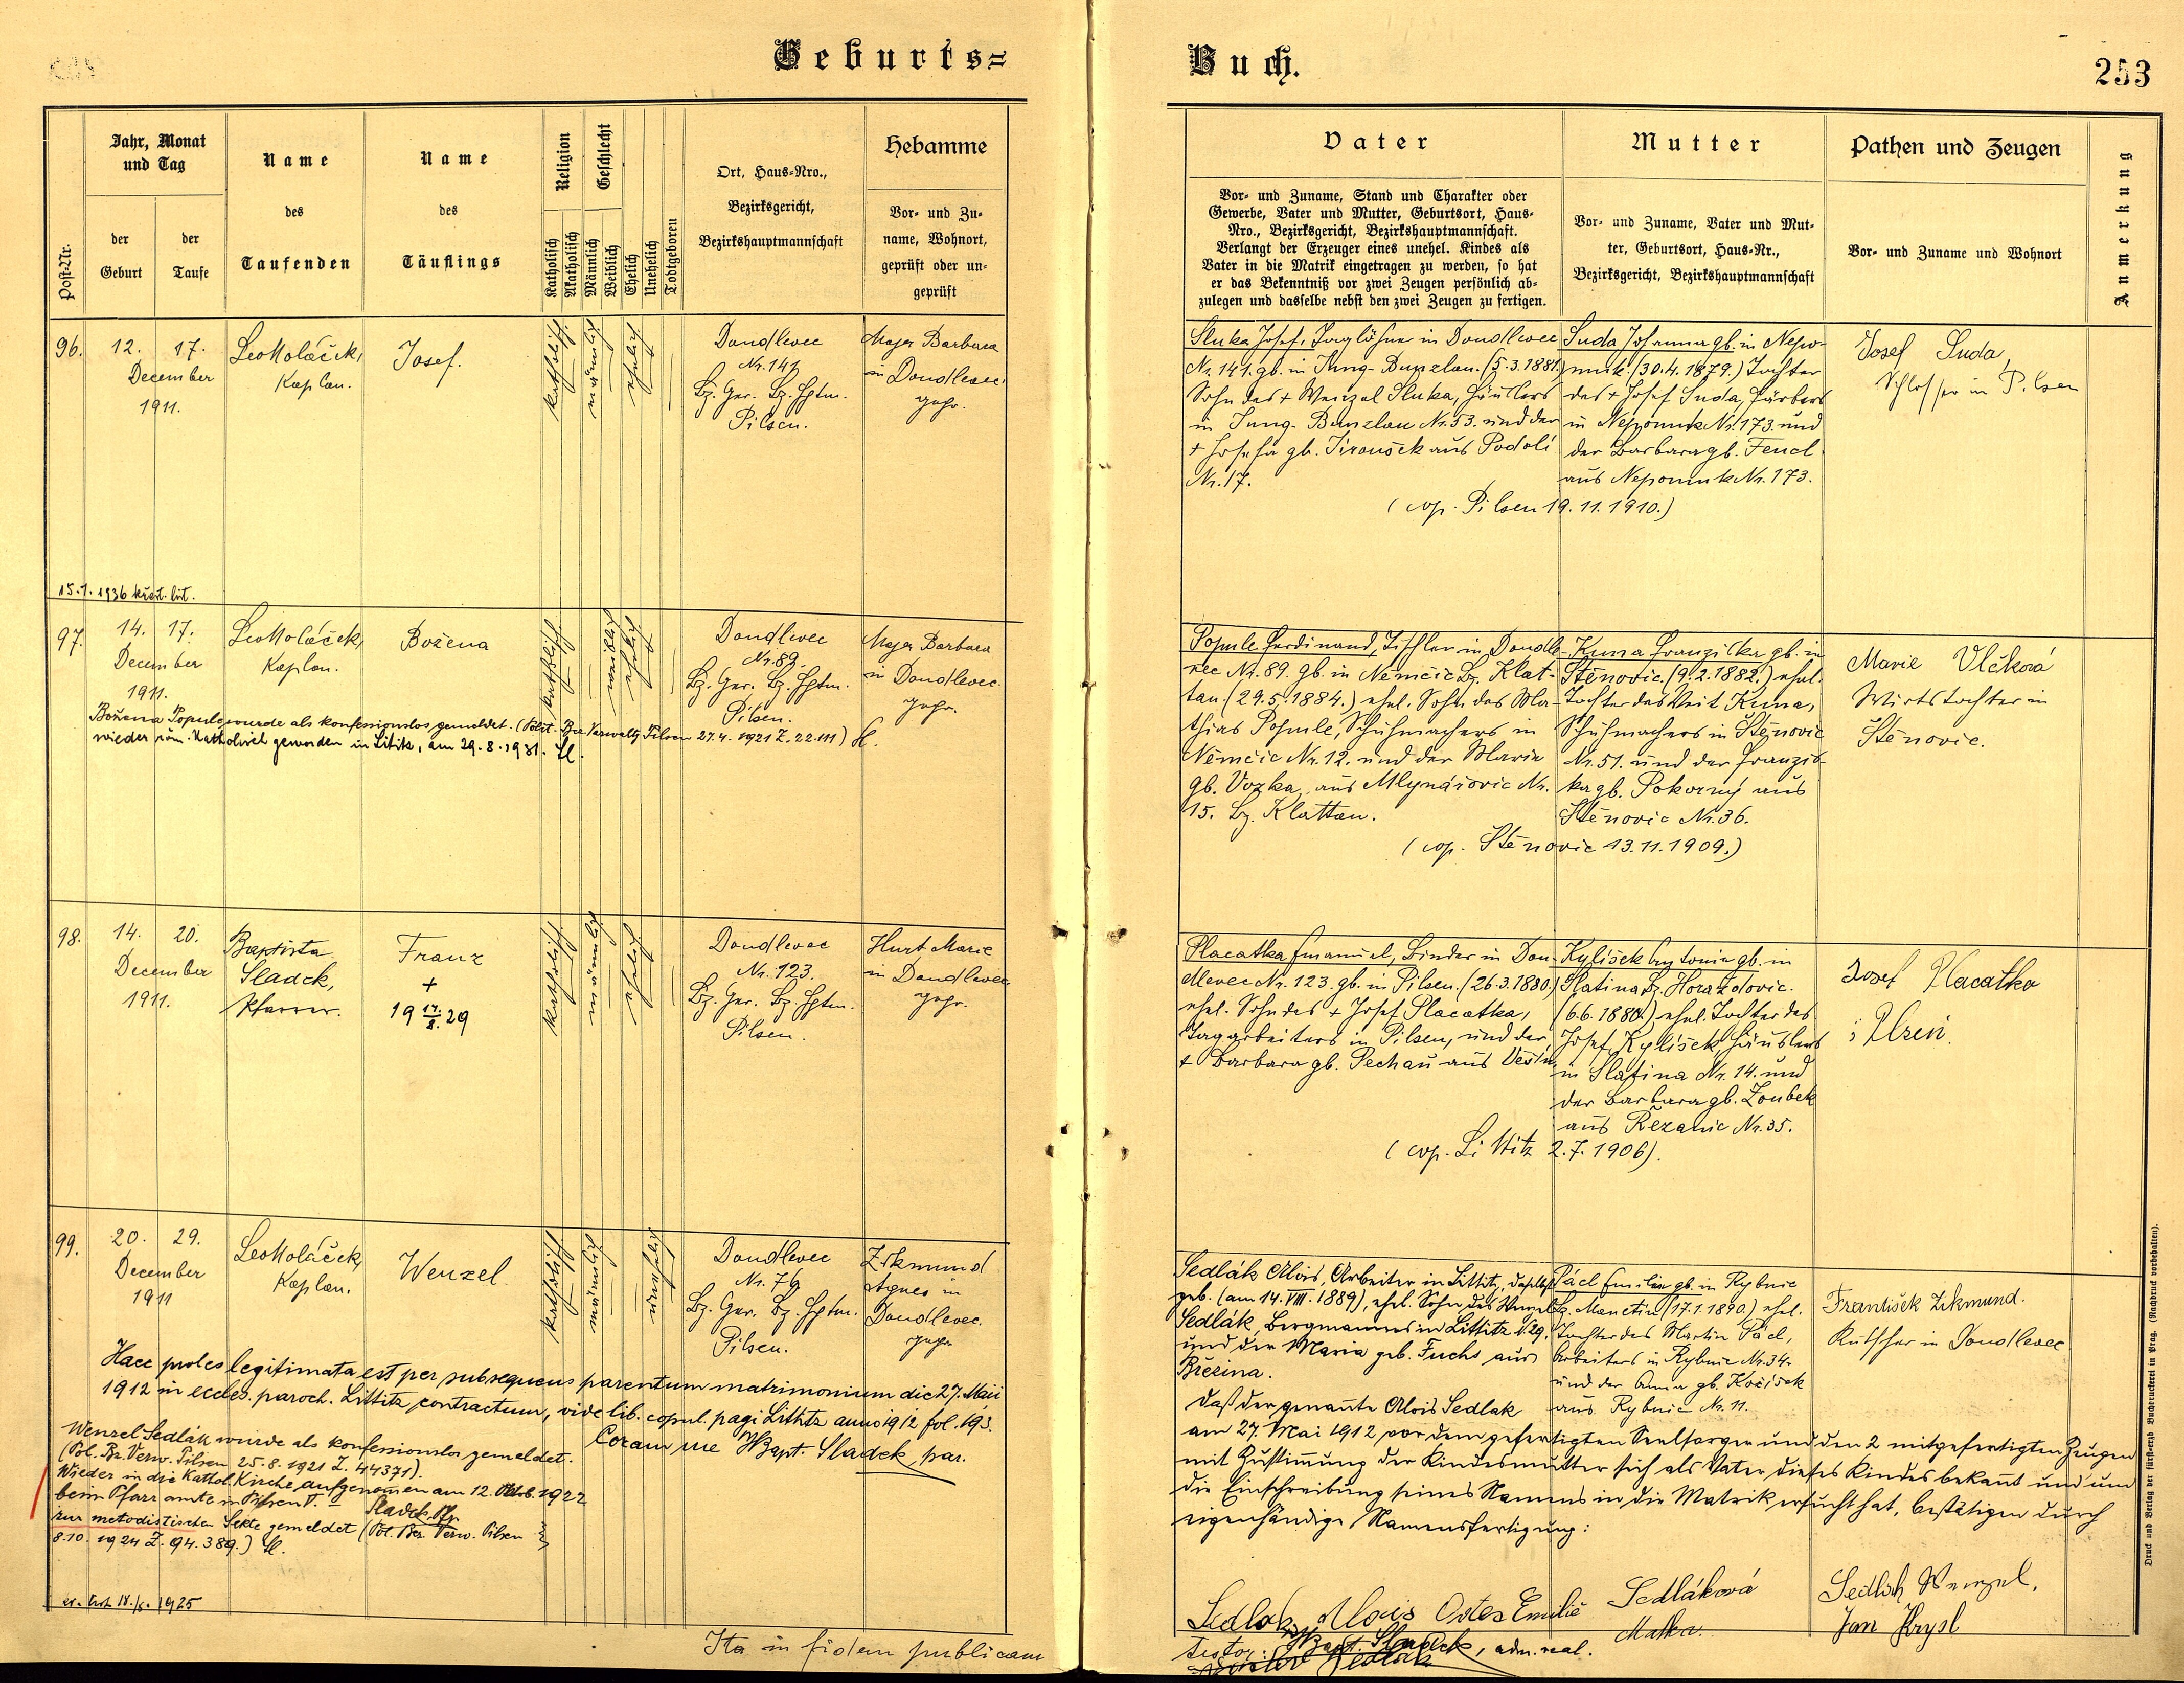 Geburts=
Buch.
253
Post-Nr.
Jahr, Monat
und Tag
der
Geburt
der
Taufe
Name
des
Taufenden
Name
des
Täuflings
Religion
Katholisch
Akatholisch
Geschlecht
Männlich
Weiblich
Ehelich
Unehelich
Todtgeboren
Ort, Haus-Nro.,
Bezirksgericht,
Bezirkshauptmannschaft
Hebamme
Vor- und Zu-
name, Wohnort,
geprüft oder un-
geprüft
Vater
Vor- und Zuname, Stand und Charakter oder
Gewerbe, Vater und Mutter, Geburtsort, Haus-
Nro., Bezirksgericht, Bezirkshauptmannschaft.
Verlangt der Erzeuger eines unehel. Kindes als
Vater in die Matrik eingetragen zu werden, so hat
er das Bekenntniß vor zwei Zeugen persönlich ab-
zulegen und dasselbe nebst den zwei Zeugen zu fertigen.
Mutter
Vor- und Zuname, Vater und Mut-
ter, Geburtsort, Haus-Nr.,
Bezirksgericht, Bezirkshauptmannschaft
Pathen und Zeugen
Vor- und Zuname und Wohnort
Anmerkung
96.
12. 17.
December
1911.
Leo Koláček,
Kaplan.
Josef.
katholisch
männlich
ehelich
Doudlevec
Nr. 141
Bz. Ger. Bz. Hptm.
Pilsen.
Majer Barbara
in Doudlevec.
gepr.
Sluka Josef, Taglöhner in Doudlevec
Nr. 141. gb. in Jung-Bunzlau. (5.3.1881.)
Sohn des + Wenzel Sluka, Häuslers
in Jung-Bunzlau Nr. 53. und der
+ Josefa gb. Jiroušek aus Podolí
Nr. 17.
Suda Johanna gb. in Nepo-
muk. (30.4.1879.) Tochter
des + Josef Suda, Färbers
in Nepomuk Nr. 173. und
der Barbara gb. Fencl
aus Nepomuk Nr. 173.
(cop. Pilsen 19.11.1910.)
Josef Suda,
Schlosser in Pilsen
15.1.1936 křest. list.
97.
14. 17.
December
1911.
Leo Koláček,
Kaplan.
Božena
katholisch
weiblich
ehelich
Doudlevec
Nr. 89.
Bz. Ger. Bz. Hptm.
Pilsen.
Majer Barbara
in Doudlevec.
gepr.
Božena Popule wurde als konfessionslos gemeldet. (Polit. Bez. Verwaltg Pilsen 27.4.1921 Z. 22.111) Sl.
wieder röm. katholisch geworden in Lititz, am 29.8.1931. Sl.
Popule Ferdinand, Tischler in Doudle-
vec Nr. 89. gb. in Němčic Bz. Klat-
tau (29.5.1884.) ehel. Sohn des Ma-
thias Popule, Schuhmachers in
Němčic Nr. 12. und der Maria
gb. Vozka, aus Mlynářovic Nr.
15. Bz. Klattau.
Kuna Franziska gb. in
Stěnovic (9.2.1882.) ehel.
Tochter des Veit Kuna,
Schuhmachers in Štěnovic
Nr. 51. und der Franzis-
ka gb. Pokorný aus
Stěnovic Nr. 36.
(cop. Stěnovic 13.11.1909.)
Marie Vlčková
Wirtstochter in
Stěnovic.
98.
14. 20.
December
1911.
Baptista
Sladek,
Pfarrer.
Franz
+
19 17./8. 29
katholisch
männlich
ehelich
Doudlevec
Nr. 123.
Bz. Ger. Bz. Hptm.
Pilsen.
Hurt Marie
in Doudlevec
gepr.
Placatka Emanuel, Binder in Dou-
dlevec Nr. 123. gb. in Pilsen. (26.3.1880.)
ehel. Sohn des + Josef Placatka,
Tagarbeiters in Pilsen, und der
+ Barbara gb. Pechau aus
Kylišek Antonia gb. in
Slatina Bz. Horaždovic.
(6.6.1880.) ehel. Tochter des
Josef Kylišek, Häuslers
in Slatina Nr. 14. und
der Barbara gb. Zoubek
aus Řezanic Nr. 35.
(cop. Littitz 2.7.1906).
Josef Placatka
i Plzeň.
99.
20. 29.
December
1911
Leo Koláček,
Kaplan.
Wenzel
katholisch
männlich
unehelich
Doudlevec
Nr. 76
Bz. Ger. Bz. Hptm.
Pilsen.
Zikmund
Agnes in
Doudlevec.
gepr.
Haec proles legitimata est per subsequens parentum matrimonium die 27. Maii
1912 in eccles. paroch. Littitz contractum, vide lib. copul. pagi Littitz anno 1912 fol. 193.
Coram me JBapt. Sladek, par.
Wenzel Sedlák wurde als konfessionslos gemeldet.
(Pol. Bz. Verw. Pilsen 25.8.1921 Z. 44371).
Wieder in die kathol. Kirche aufgenommen am 12. Oktob. 1922
beim Pfarramte in Pilsen V. — Sladek Pfr.
zur metodistischen Sekte gemeldet (Pol. Bez. Verw. Pilsen
8.10. 1924 Z. 94.389.) Sl.
1925
Sedlák Alois, Arbeiter in Littitz, daselbst
geb. (am 14. VIII. 1889), ehel. Sohn des Wenzel
Sedlák, Bergmannes in Littitz N. 29.
und der Maria geb. Fuchs aus
Březina.
Pácl Emilia gb. in Rybnic
Bz. Manetin (17.1.1890.) ehel.
Tochter des Martin Pácl,
Arbeiters in Rybnic Nr. 34.
und der Anna gb. Kočísek
aus Rybnic Nr. 11.
František Zikmund.
Kutscher in Doudlevec
Daß der genannte Alois Sedlak
am 27. Mai 1912 vor dem gefertigten Seelsorger und den 2 mitgefertigten Zeugen
mit Zustimmung der Kindesmutter sich als Vater dieses Kindes bekannt und um
die Einschreibung seines Namens in die Matrik ersucht hat, bestätigen durch
eigenhändige Namensfertigung:
Sedlak Alois Otec Emilie Sedláková
Matka.
Sedlak Wenzel,
Jan Krysl
testor: JBapt. Sladek, adm. real.
Ita in fidem publicam
Druck und Verlag der fürsterzb. Buchdruckerei in Prag. (Nachdruck vorbehalten).